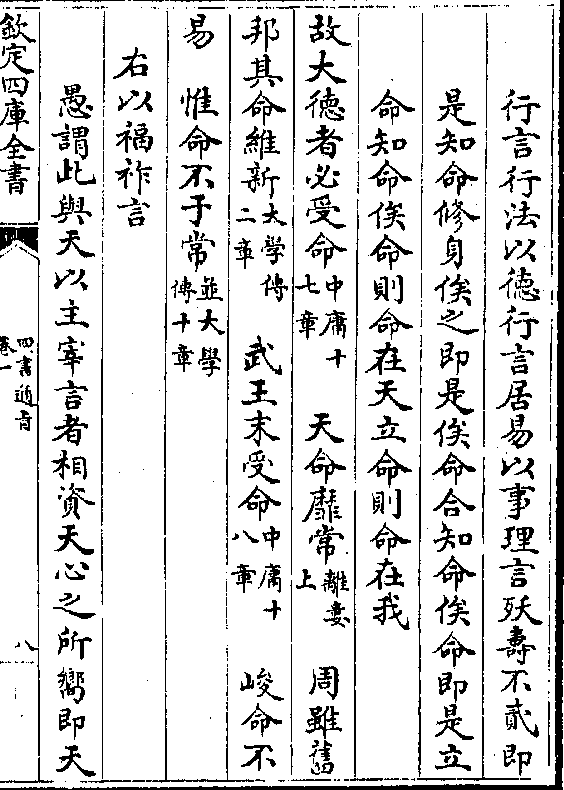 行言行法以德行言居易以事理言殀壽不貳即
是知命修身俟之即是俟命合知命俟命即是立
命知命俟命則命在天立命則命在我
故大德者必受命中庸十七章 天命靡常離婁上 周雖舊
邦其命維新大學傳二章 武王末受命中庸十八章 峻命不
易 惟命不于常並大學傳十章
右以福祚言
愚謂此與天以主宰言者相資天心之所嚮即天
欽定四庫全書
四書通旨
卷一
八